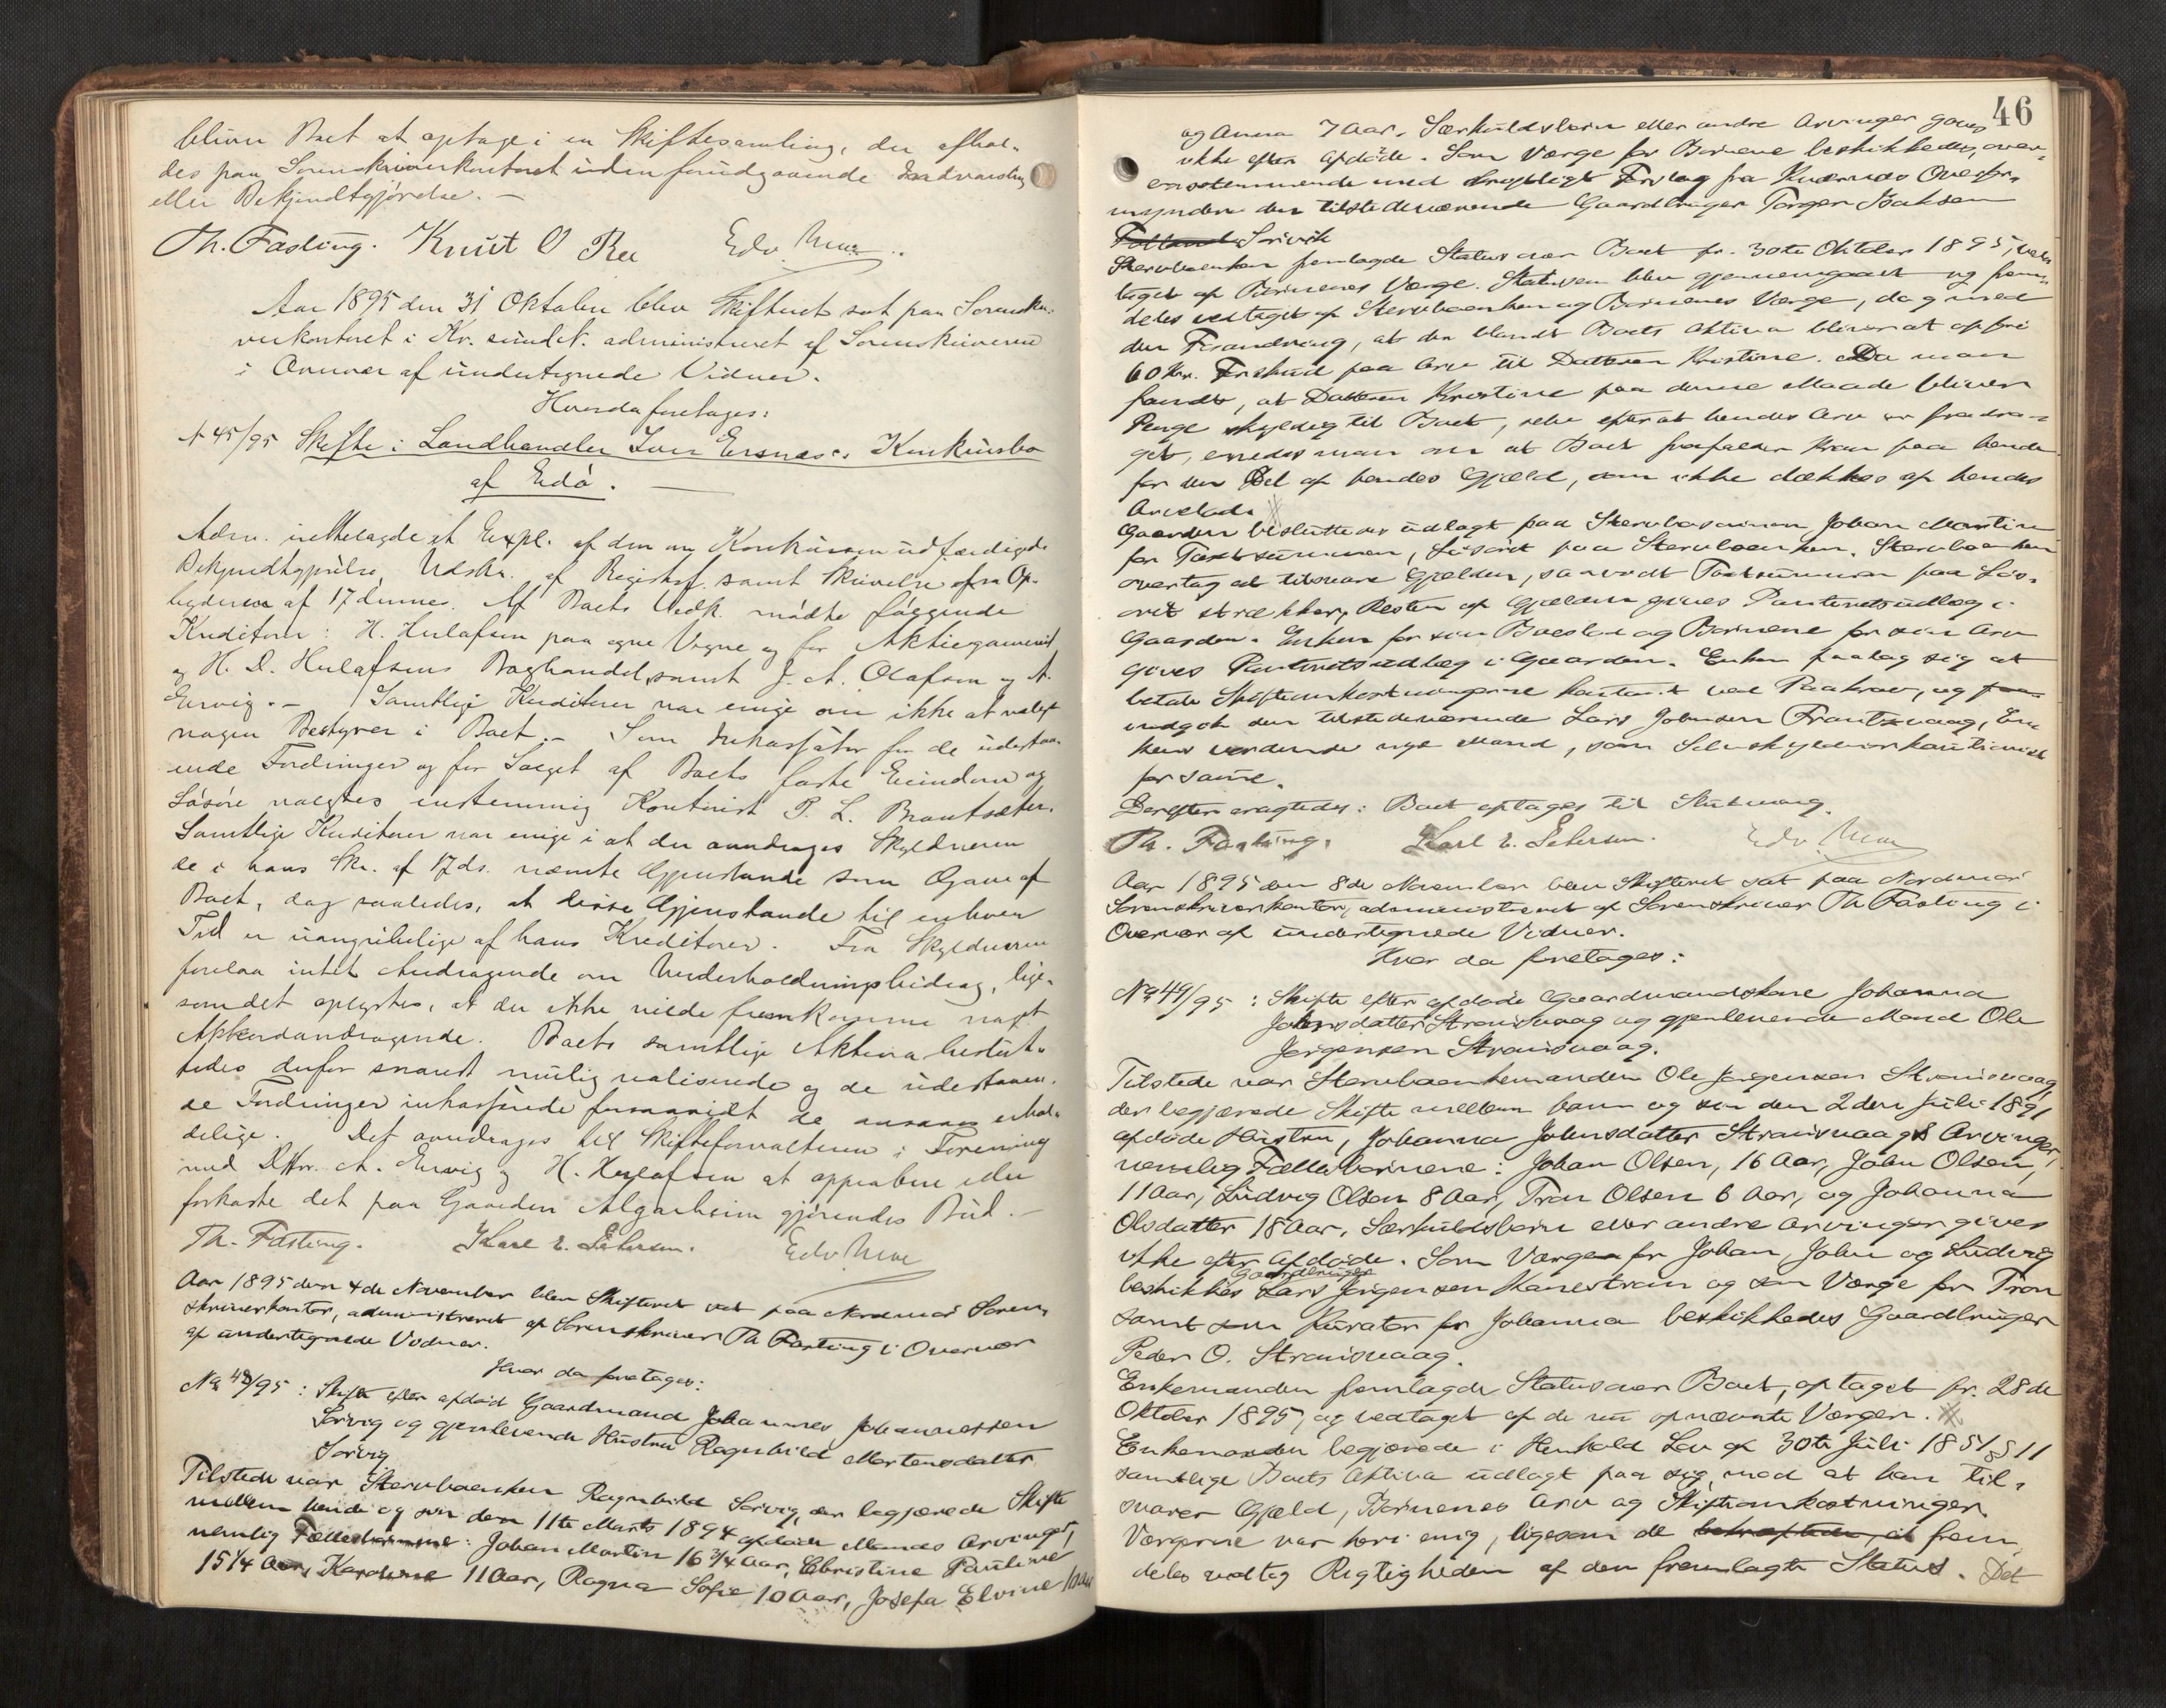 bliver Boet at optage i en Skiftesamling, der afhol-
des paa Sorenskriverkontoret uden forudgaaende Indvarsling
eller Bekjendtgjørelse. —
Th. Fasting. Knut O Ree Edv. Moe
Aar 1895 den 31 Oktober blev Skifteret sat paa Sorenskri-
verkontoret i Kr.sund N. administreret af Sorenskriveren
i Overvær af undertegnede Vidner.
Hvorda foretages:
N 45/95 Skifte i Landhandler Iver Ersnæs's Konkursbo
af Edø. —
Adm. irettelagde et Expl. af den om Konkursen udfærdigede
Bekjendtgjørelse, Udskr. af Registref. samt Skrivelse fra Op-
byderen af 17 dennes. Af Boets Vedk. mødte følgende
Kreditorer: H. Hulafsen paa egne Vegne og for Aktiegarveriet
og H. D. Hulafsens Boghandel, samt J. A. Olafsen og A.
Ervig. — Samtlige Kreditorer var enige om ikke at vælge
nogen Bestyrer i Boet. — Som Inkassator for de udestaa-
ende Fordringer og for Salget af Boets faste Eiendom og
Løsøre valgtes enstemmig Kontorist P. L. Brantsæter.
Samtlige Kreditorer var enige i at der overdrages Skyldneren
de i hans Skr. af 17 ds. nævnte Gjenstande som Gave af
Boet, dog saaledes, at disse Gjenstande til enhver
Tid er uangribelige af hans Kreditorer. Fra Skyldneren
forelaa intet Andragende om Underholdningsbidrag, lige-
som det oplystes, at der ikke vilde fremkomme noget
Akkordandragende. Boets samtlige Aktiva beslut-
tedes derfor snarest mulig realiserede og de udestaaen-
de Fordringer inkasserede forsaavidt de ansaaes erhol-
delige. Det overdrages til Skifteforvalteren i Forening
med DHrr. A. Ervig og H. Hulafsen at approbere eller
forkaste det paa Gaarden Algarheim gjørendes Bud. —
Th. Fasting. Karl E. Petersen. Edv Moe
Aar 1895 den 4de November blev Skifteret sat paa Nordmør Soren-
skriverkontor, administreret af Sorenskriver Th Fasting i Overvær
af undertegnede Vidner.
Hvor da foretages:
No 48/95: Skifte efter afdød Gaardmand Johannes Johannessen
Sorvig og gjenlevende Hustru Ragnhild Martensdatter
Sorvig
Tilstede var Stervboenken Ragnhild Sorvig, der begjærede Skifte
mellem hende og sin den 11te Marts 1894 afdøde Mands Arvinger,
nemlig Fællesbørnene: Johan Martin 16 3/4 Aar, Christine Pauline
15 1/4 Aar, Karoline 11 Aar, Ragna Sofie 10 Aar, Josefa Elvine
46
og Anna 7 Aar. Særkuldsbørn eller andre Arvinger gives
ikke efter Afdøde. Som Værge for Børnene beskikkedes, over-
ensstemmende med skriftligt Forslag fra Kvernes Overfor-
mynderi den tilstedeværende Gaardbruger Torger Isaksen
Sorvik
Stervboenken fremlagde Status over Boet pr. 30te Oktober 1895, ved-
taget af Børnenes Værge. Statusen blev gjennemgaaet og frem-
deles vedtaget af Stervboenken og Børnenes Værge, dog med
den Forandring, at der blandt Boets Aktiva bliver at opføre
60 Kr. Forskud paa Arv til Datteren Kristine. Da man
fandt, at Datteren Kristine paa denne Maade bliver
Penge skyldig til Boet, selv efterat hendes Arv er fradra-
get, enedes man om at Boet frafalder Krav paa hende
for den Del af hendes Gjæld, som ikke dækkes af hendes
Arvelod.
Gaarden besluttedes udlagt paa Stervbosønnen Johan Martin
for Taxtsummen, Løsøret paa Stervboenken. Stervboenken
overtog at tilsvare Gjælden, saavidt Taxtsummen paa Løs-
øret strækker, Resten af Gjælden gives Panteretsudlæg i
Gaarden. Enken for sin Boeslod og Børnene for sin Arv
gives Panteretsudlæg i Gaarden. Enken paatog sig at
betale Skifteomkostningerne kontant ved Paakrav, og
indgik den tilstedeværende Lars Johnsen Frantsvaag, En-
kens vordende nye Mand, som Selvskyldnerkautionist
for samme.
Derefter eragtedes: Boet optages til Slutning.
Th. Fasting. Karl E. Petersen. Edv Moe
Aar 1895 den 8de November blev Skifteret sat paa Nordmør
Sorenskriverkontor, administreret af Sorenskriver Th Fasting i
Overvær af undertegnede Vidner.
Hvor da foretages:
No 49/95: Skifte efter afdøde Gaardmandskone Johanna
Johnsdatter Straumsvaag og gjenlevende Mand Ole
Jørgensen Straumsvaag.
Tilstede var Stervboenkemanden Ole Jørgensen Straumsvaag,
der begjærede Skifte mellem ham og sin den 2den Juli 1891
afdøde Hustru, Johanna Johnsdatter Straumsvaags Arvinger,
nemlig Fællesbørnene: Johan Olsen, 16 Aar, John Olsen,
11 Aar, Ludvig Olsen 8 Aar, Tron Olsen 6 Aar, og Johanna
Olsdatter 18 Aar. Særkuldsbørn eller andre Arvinger gives
ikke efter Afdøde. Som Værge for Johan, John og Ludvig
beskikkes Gaardbruger Lars Jørgensen Kanestrøm og som Værge for Tron
samt som Kurator for Johanna beskikkedes Gaardbruger
Peder O. Straumsvaag.
Enkemanden fremlagde Status over Boet, optaget pr. 28de
Oktober 1895, og vedtaget af de nu opnævnte Værger.
Enkemanden begjærede i Henhold Lov af 30te Juli 1851 § 11
samtlige Boets Aktiva udlagt paa sig, mod at han til-
svarer Gjæld, Børnenes Arv og Skifteomkostninger.
Værgerne var heri enig, ligesom de frem-
deles vedtog Rigtigheden af den fremlagte Status. Det